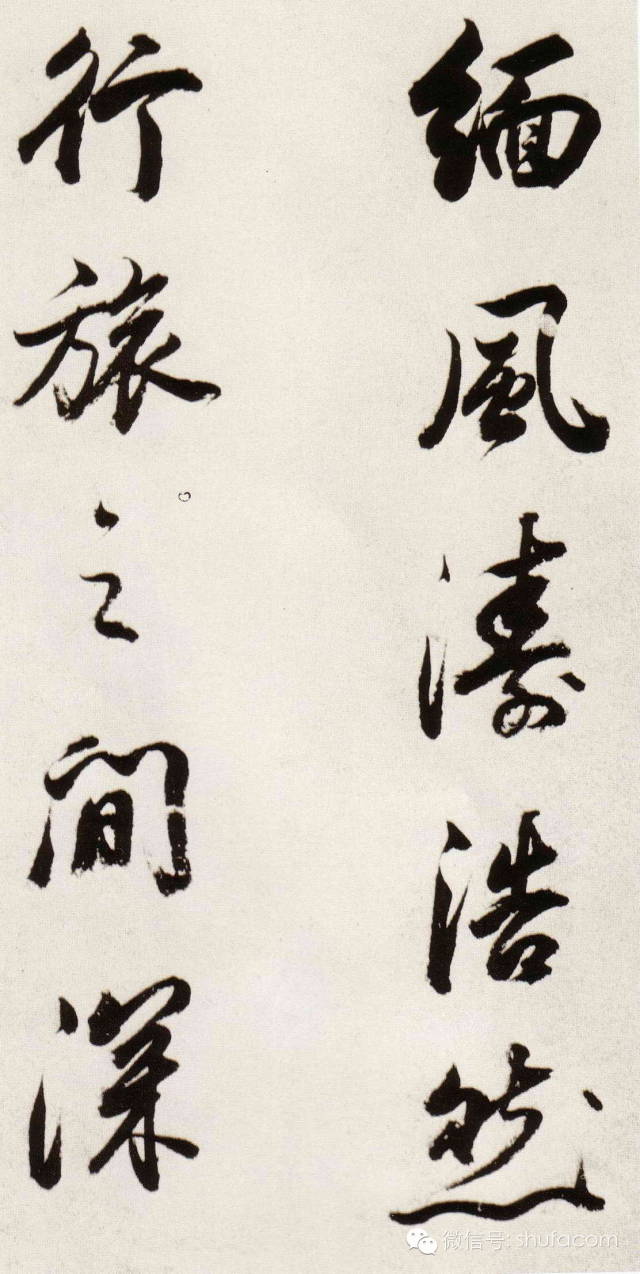 缅風濤浩然
行旅之間深
微信号: shufacom